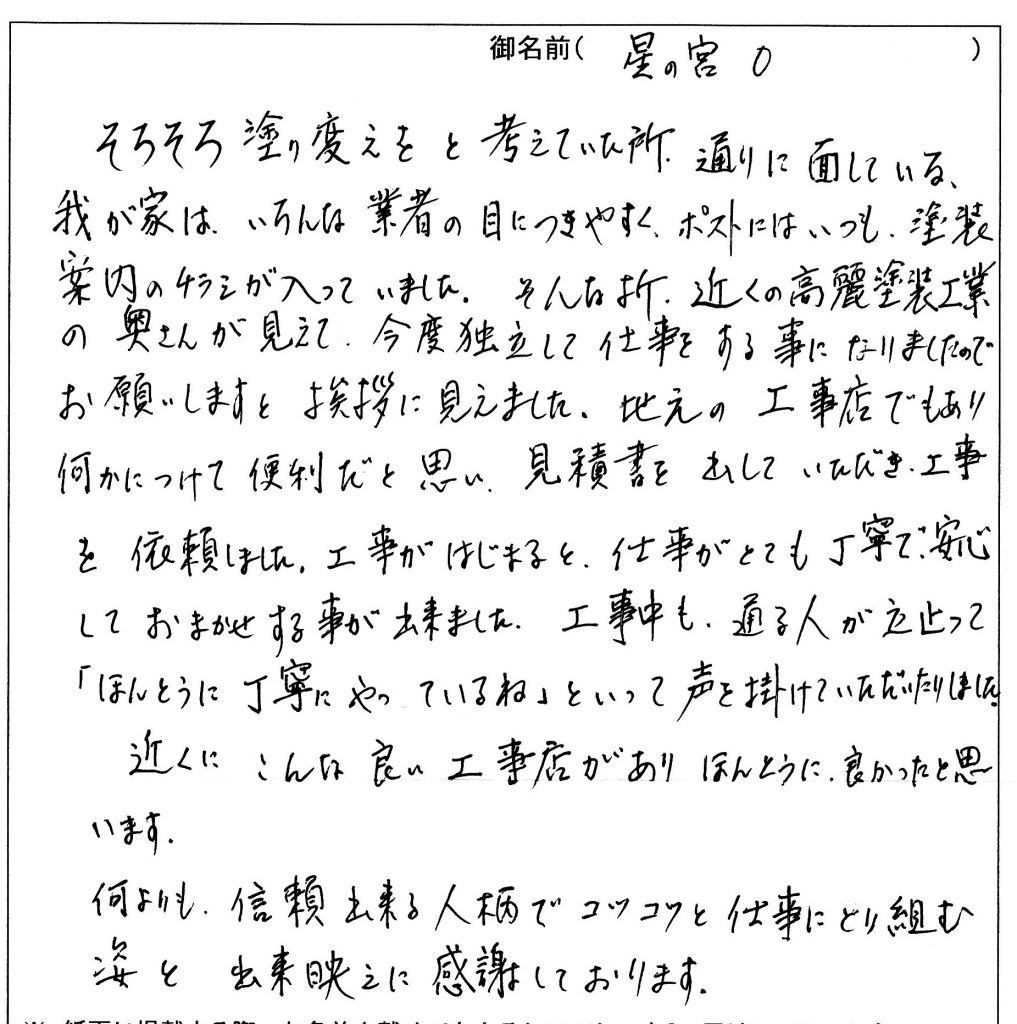 御名前( 星の宮 O )
そろそろ塗り変えをと考えていた所、通りに面している、
我が家は、いろんな業者の目につきやすく、ポストにはいつも、塗装
案内のチラシが入っていました。そんな折、近くの高麗塗装工業
の奥さんが見えて、今度独立して仕事をする事になりましたので
お願いしますと挨拶に見えました。地元の工事店でもあり
何かにつけて便利だと思い、見積書を出していただき、工事
を依頼しました。工事がはじまると、仕事がとても丁寧で、安心
しておまかせする事が出来ました。工事中も、通る人が立止って
「ほんとうに丁寧にやっているね」といって声を掛けていただいたりしました。
近くにこんな良い工事店がありほんとうに、良かったと思
います。
何よりも、信頼出来る人柄でコツコツと仕事にとり組む
姿と出来映えに感謝しております。